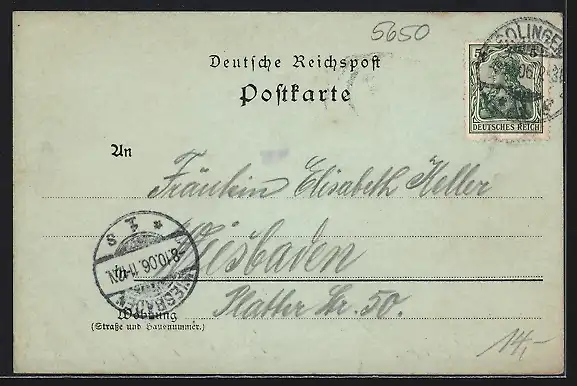 5650
SOLINGEN
Deutsche Reichspost
Postkarte
5 5
DEUTSCHES REICH
An
Fräulein Elisabeth Keller
Wiesbaden
Platter Str. 50.
* 1 S
8.10.06. 11-12N
WIESBADEN
Wohnung
(Straße und Hausnummer.)
14,-